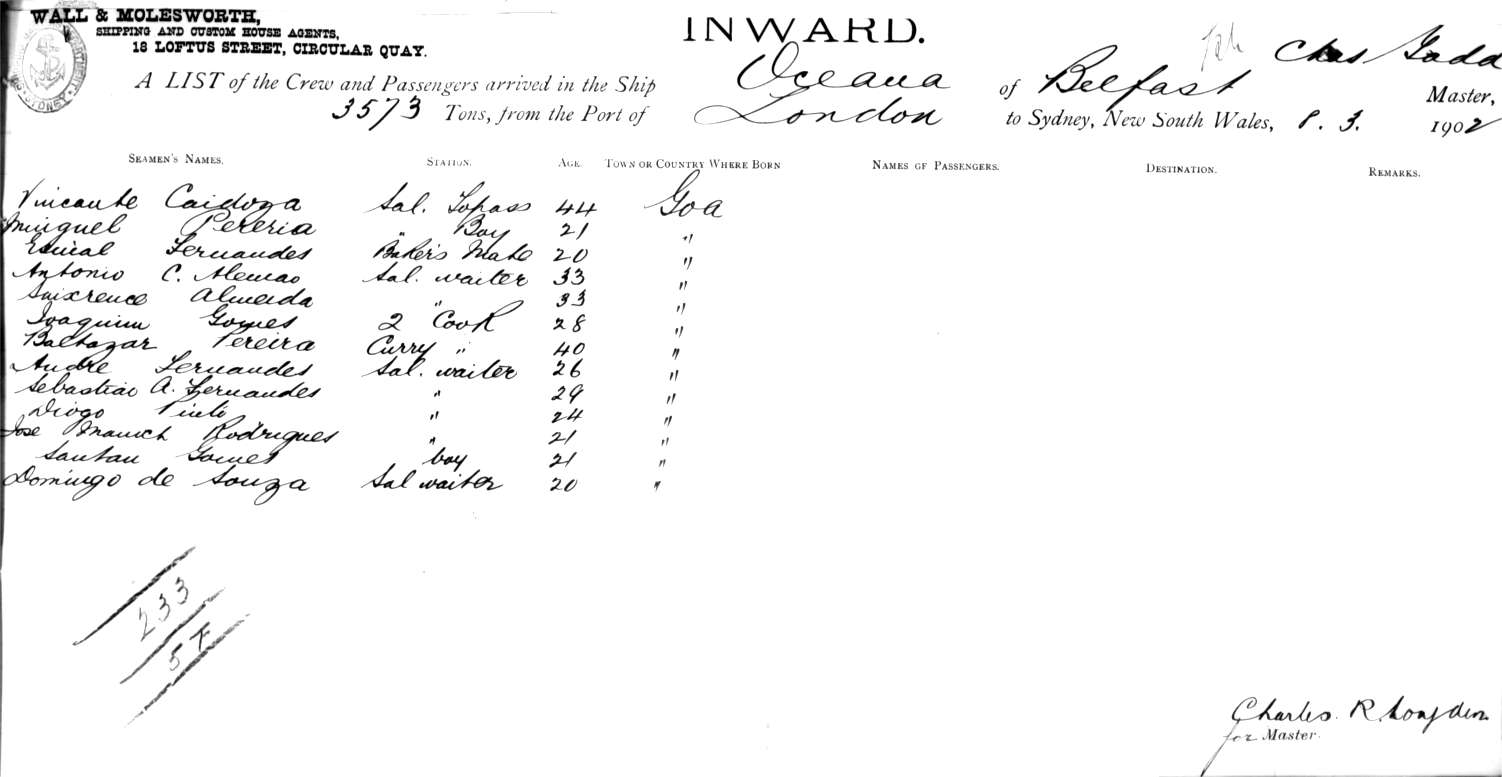 WALL & MOLESWORTH,
SHIPPING AND CUSTOM HOUSE AGENTS,
18 LOFTUS STREET, CIRCULAR QUAY.
INWARD.
Chas Gadd
A LIST of the Crew and Passengers arrived in the Ship Oceana of Belfast Master,
3573 Tons, from the Port of London to Sydney, New South Wales, 8. 3. 1902
SEAMEN'S NAMES. STATION. AGE. TOWN OR COUNTRY WHERE BORN NAMES OF PASSENGERS. DESTINATION. REMARKS.
Vincante Caidoza Sal. Topass 44 Goa
Minguel Pereria " Boy 21 "
Fernandes Baker's Mate 20 "
Antonio C. Alemao Sal. waiter 33 "
Almeida " 33 "
Joaquim Gomes 2 Cook 28 "
Baltazar Pereira Curry " 40 "
Andre Fernandes Sal. waiter 26 "
Sebastiao A. Fernandes " 29 "
Diogo Pinto " 24 "
Jose Rodrigues " 21 "
Santan Gomes boy 21 "
Domingo de Souza Sal waiter 20 "
233
54
Charles R Longden
for Master.